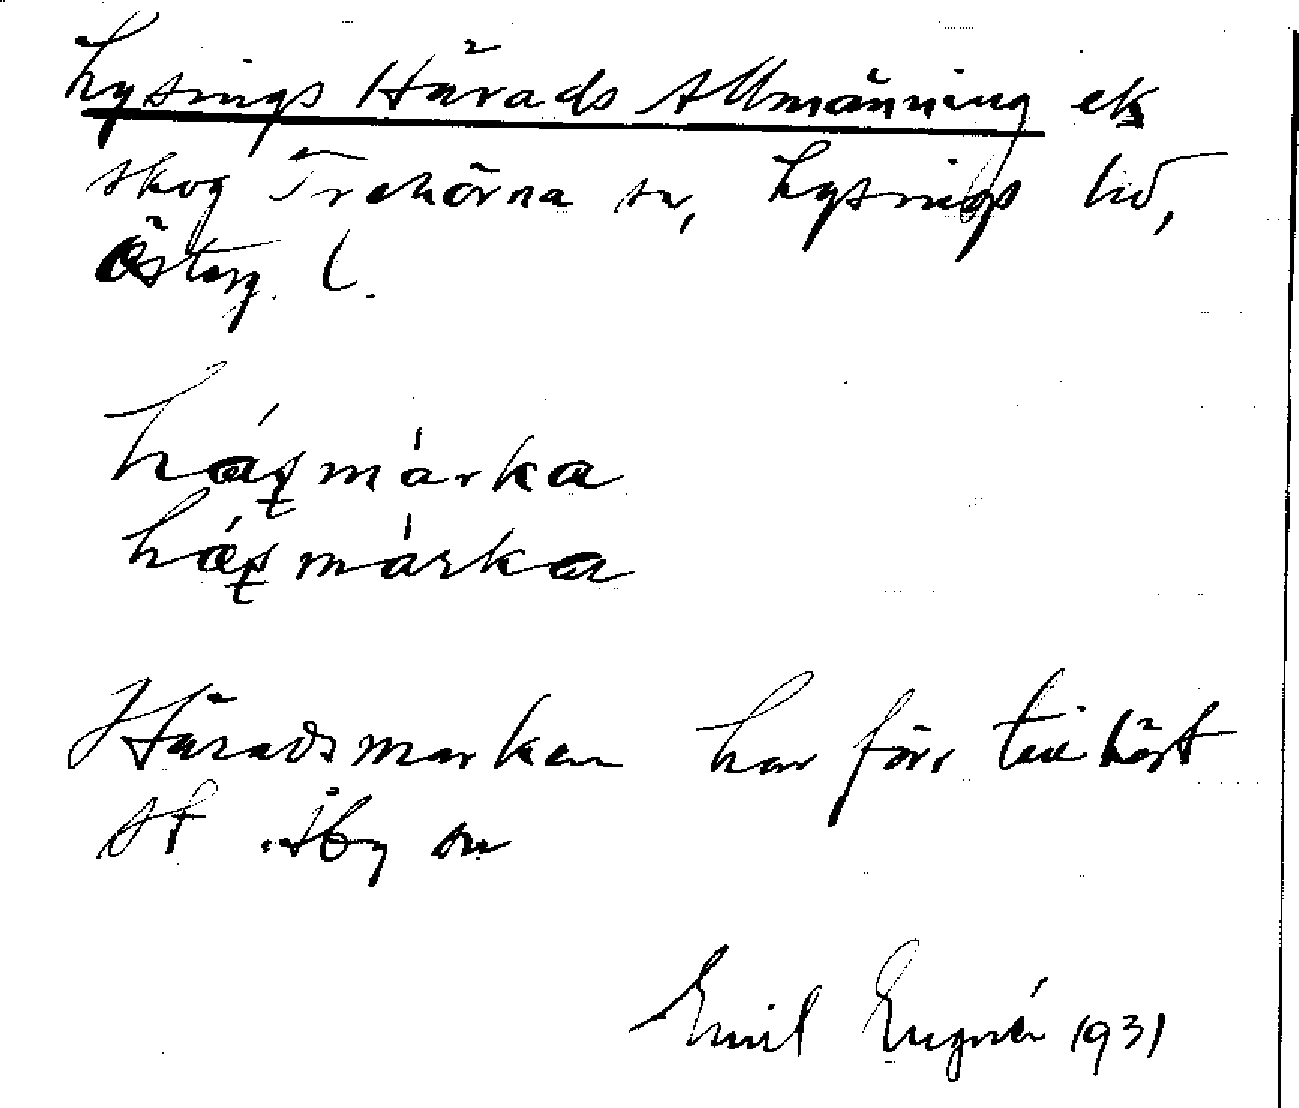 Lysings Härads Allmänning ek
skog Trehörna sn, Lysings hd,
Österg. L.
häṣmárka
häṣmárka
Häradsmarken har förr tillhört
St. Åby sn
Emil Lugnér 1931